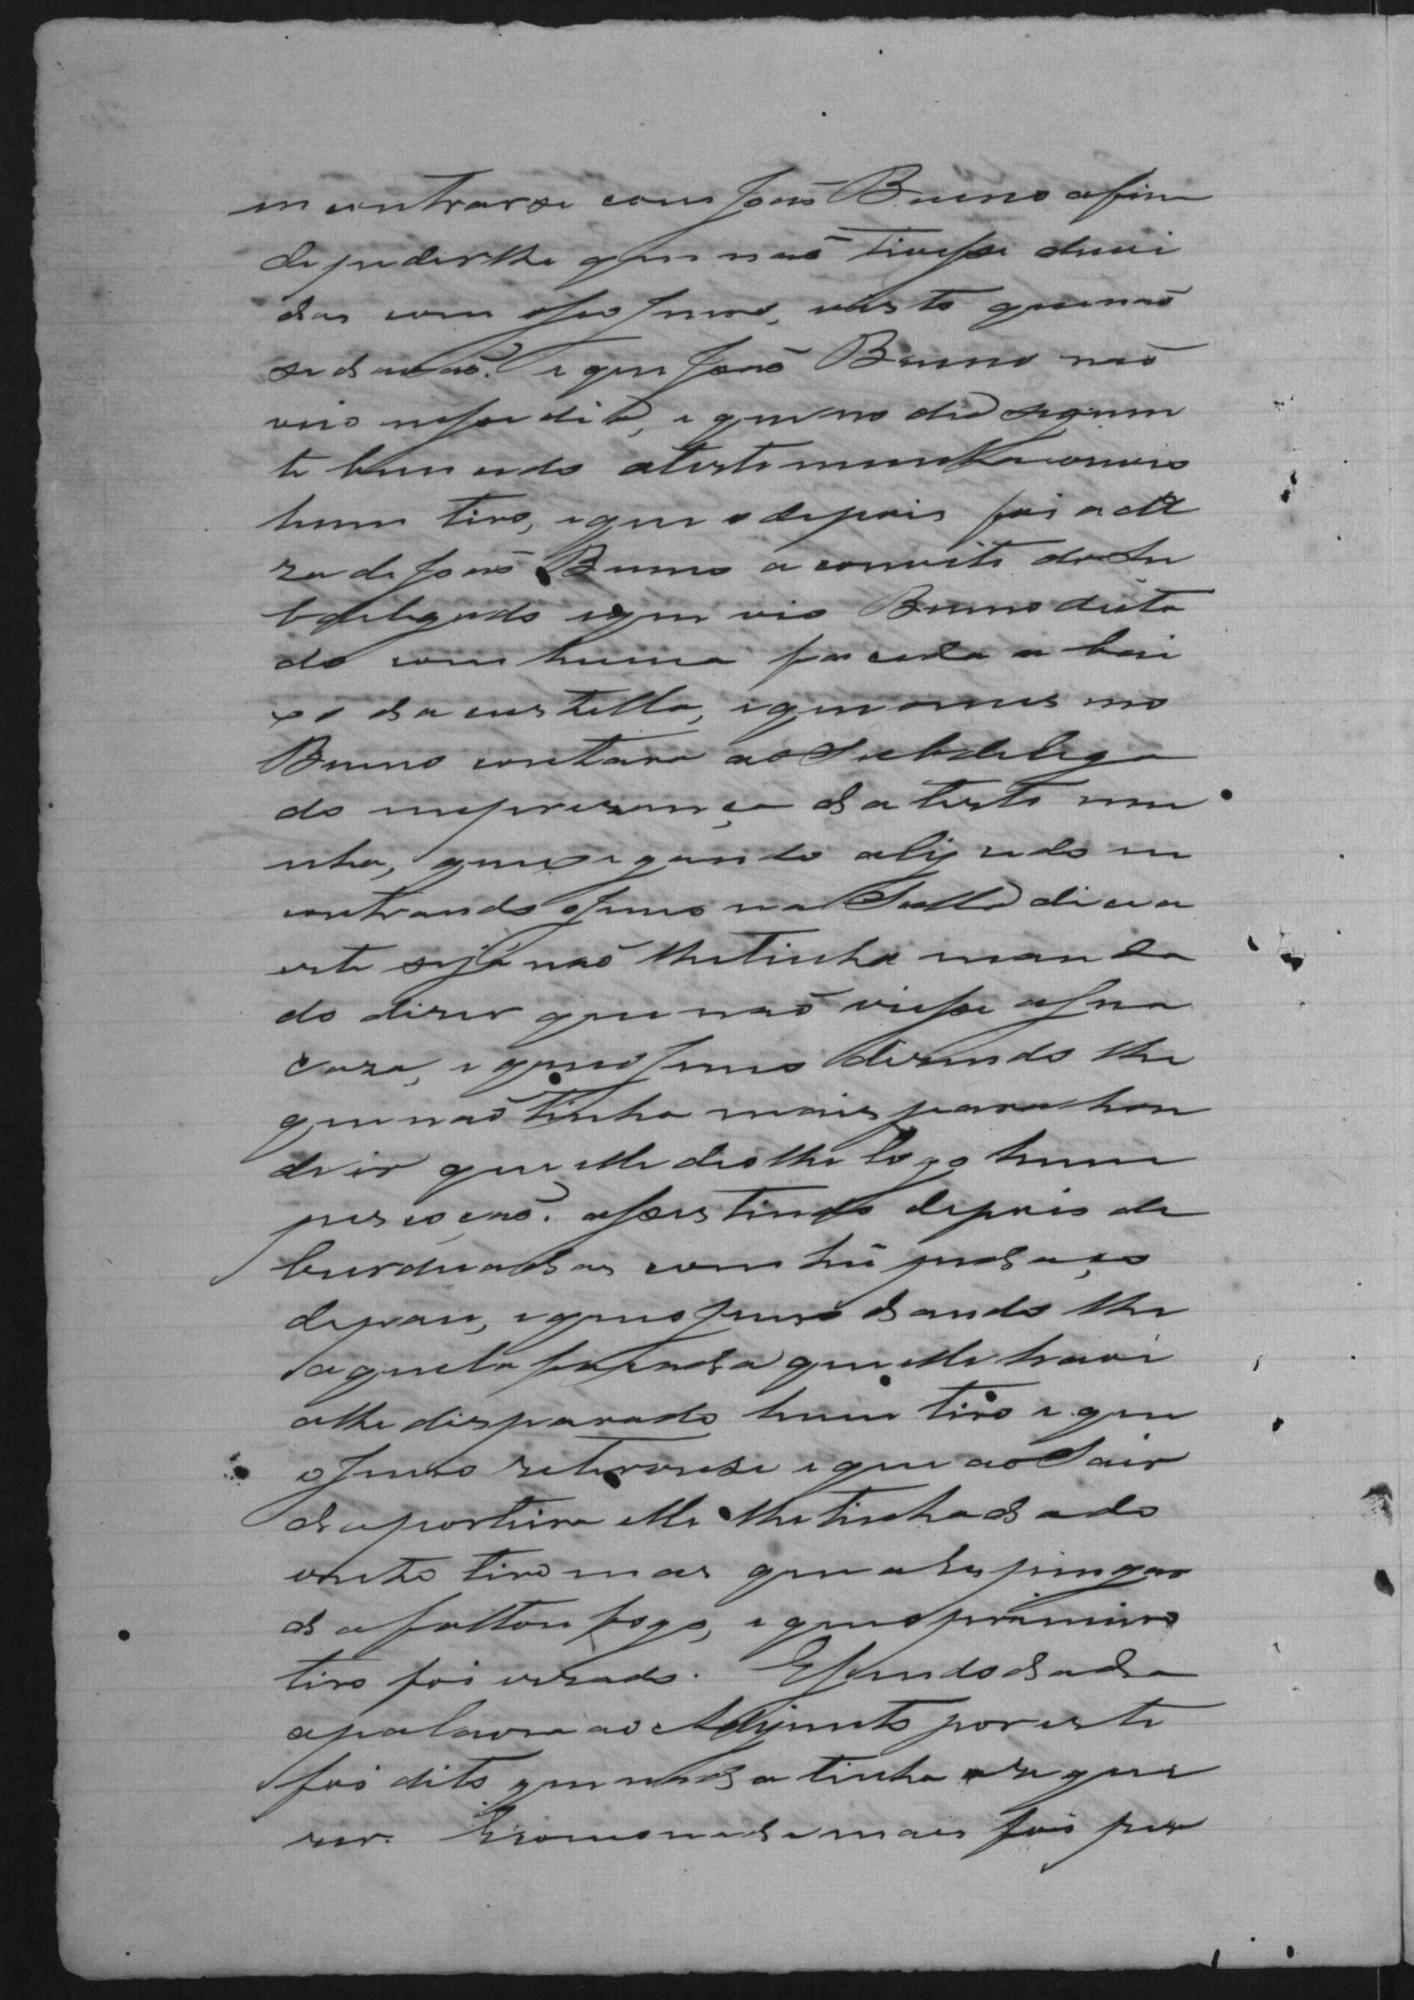 in contrarse com João Bueno afim
de pedirlhe que não tivesse duvi
das com o seo genro, visto que não
se davão. e que João Bueno não
veio nesse dia, e que no dia seguin
te bem cedo a testemunha ouvio
hum tiro, e que o depois foi a ca
za de João Bueno a convite do Su
bdelegado e que vio Bueno deita
do com huma facada a bai
xo da custella, e que o mesmo
Bueno contara ao Subdelega
do em prezença da teste mu
nha, que xegando alij e ali en
contrando o genro na Salla dicera
este se já não lhe tinha manda
do dizer que não viesse a sua
caza, e que o genro dizendo lhe
que não tinha mais para hon
de ir que elle deo lhe logo hum
pescoção. assestindo depois de
burduadas com hũ pedaço
de pau, e que o genro dando lhe
aquela facada que elle havi
a lhe disparado hum tiro e que
o genro retirouse e que ao Sair
da porteira elle lhe tinha dado
outro tiro mas que a espingar
da faltou fogo, e que o primeiro
tiro foi errado. E sendo dada
a palavra ao Adjunto por este
foi dito que nada tinha a reque
rer. E como nada mais foi per